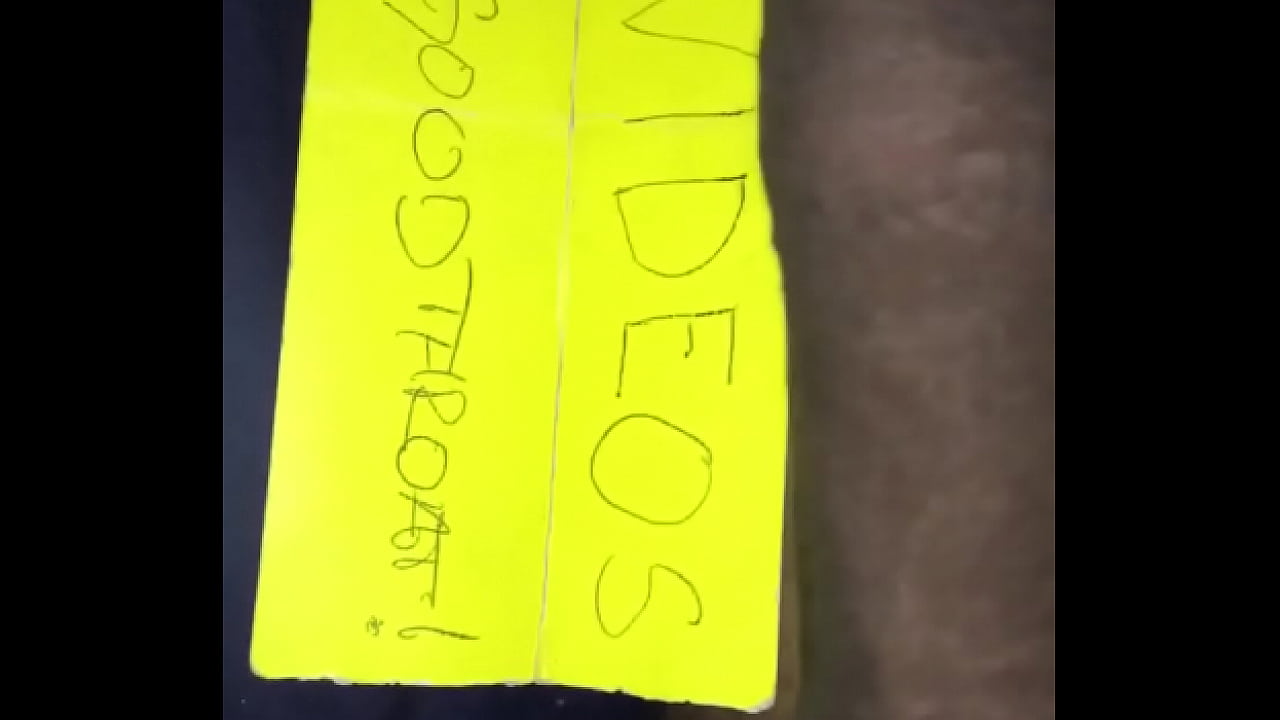 VIDEOS
GOOD THROAT!